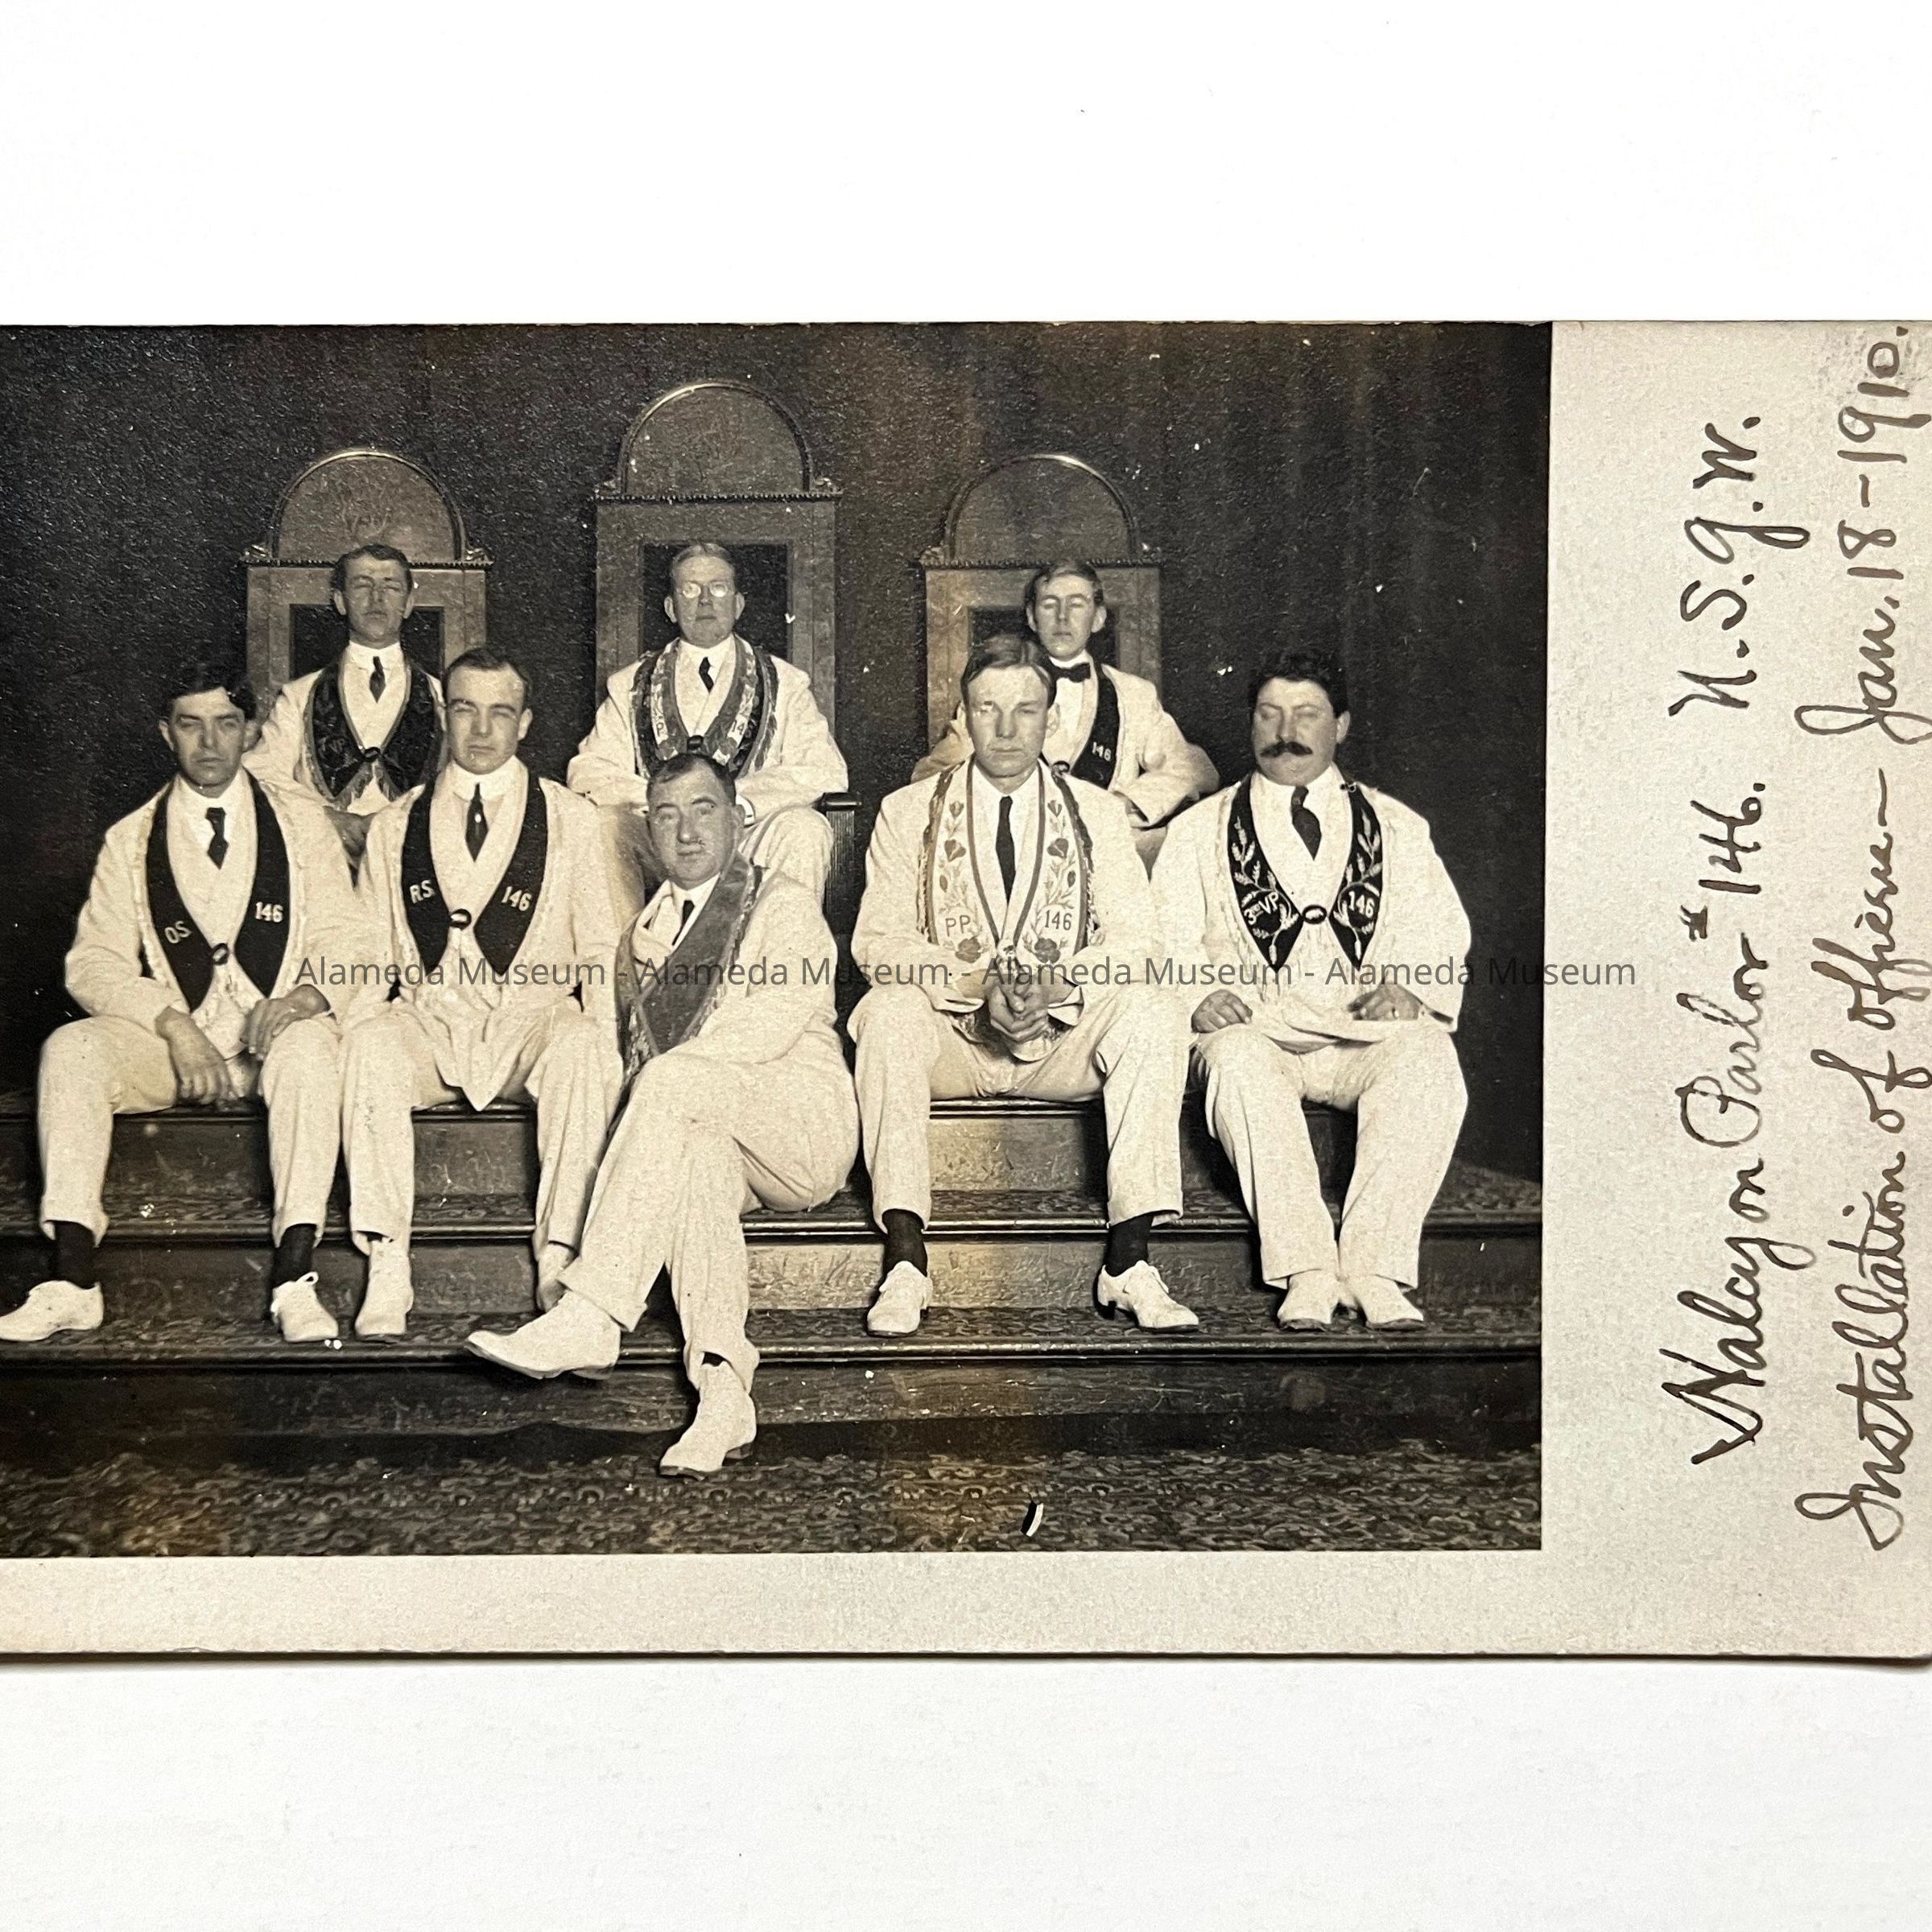 OS. 146
R.S. 146
146
PP. 146
3RD VP 146
Alameda Museum - Alameda Museum - Alameda Museum - Alameda Museum
Halcyon Parlor #146. N.S.G.W.
Installation of officers — Jan. 18-1910.